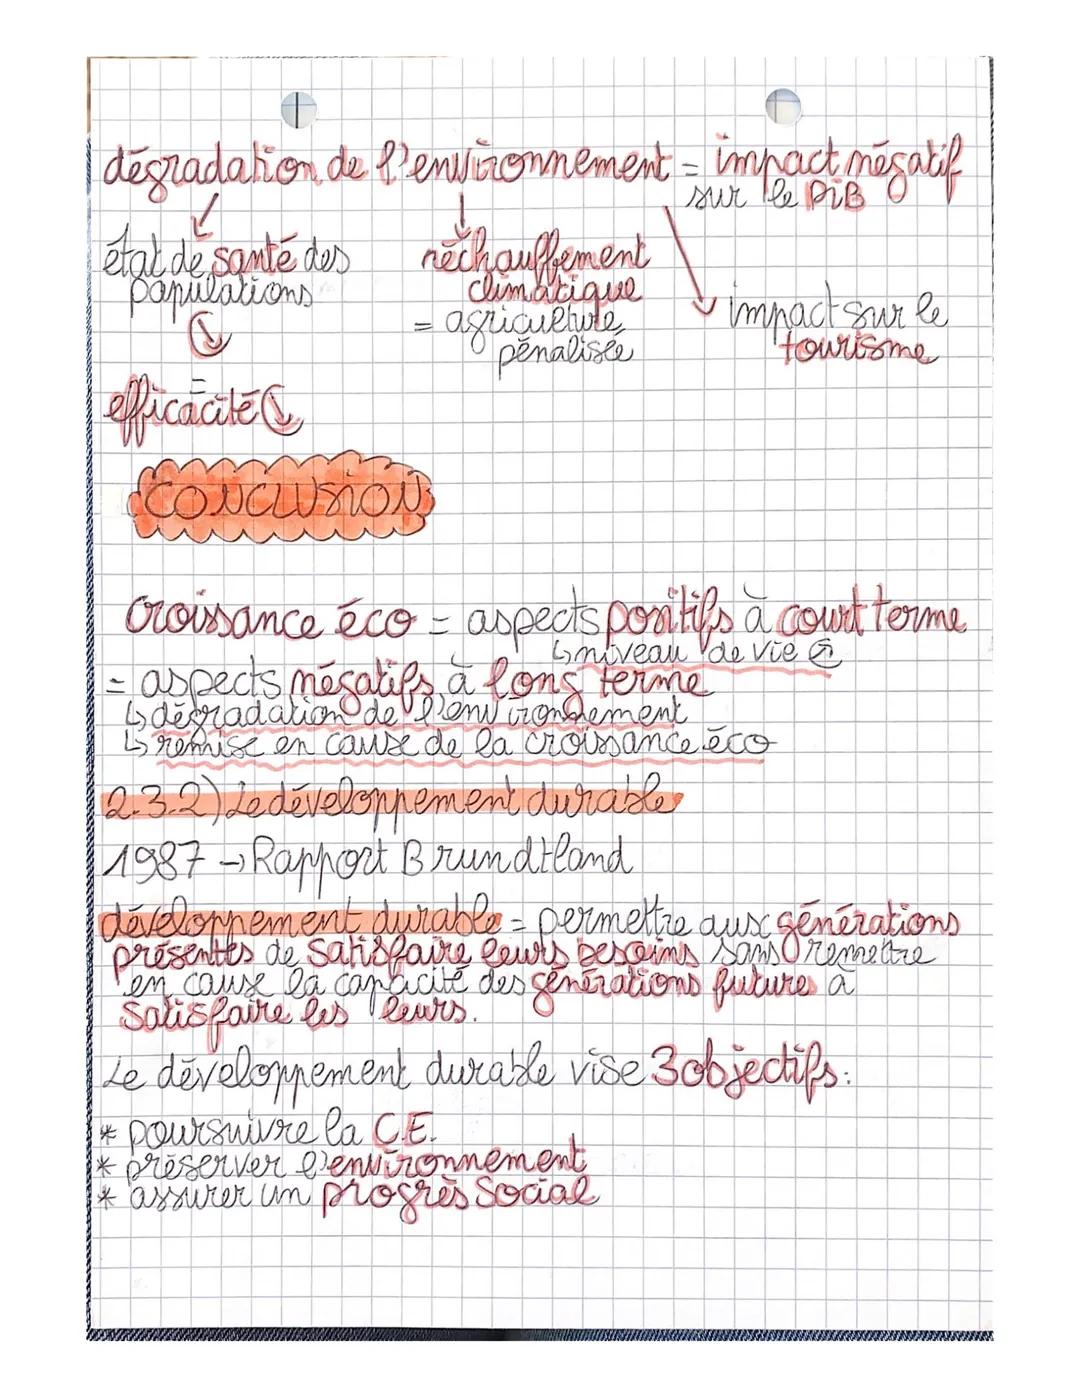 dégradation de l'environnement = impact négatif
sur le PiB
état de santé des
populations
↘
=
efficacité ↘
réchauffement
climatique
= agriculture
pénalisée
impact sur le
tourisme
CONCLUSION
Croissance éco = aspects positifs à court terme
↳ niveau de vie ↗
= aspects négatifs à long terme
↳ dégradation de l'environnement
↳ remise en cause de la croissance éco
2.3.2) Le développement durable
1987 → Rapport Brundtland
développement durable = permettre aux générations
présentes de satisfaire leurs besoins sans remettre
en cause la capacité des générations futures à
satisfaire les leurs.
Le développement durable vise 3 objectifs :
* poursuivre la C.E.
* préserver l'environnement
* assurer un progrès Social